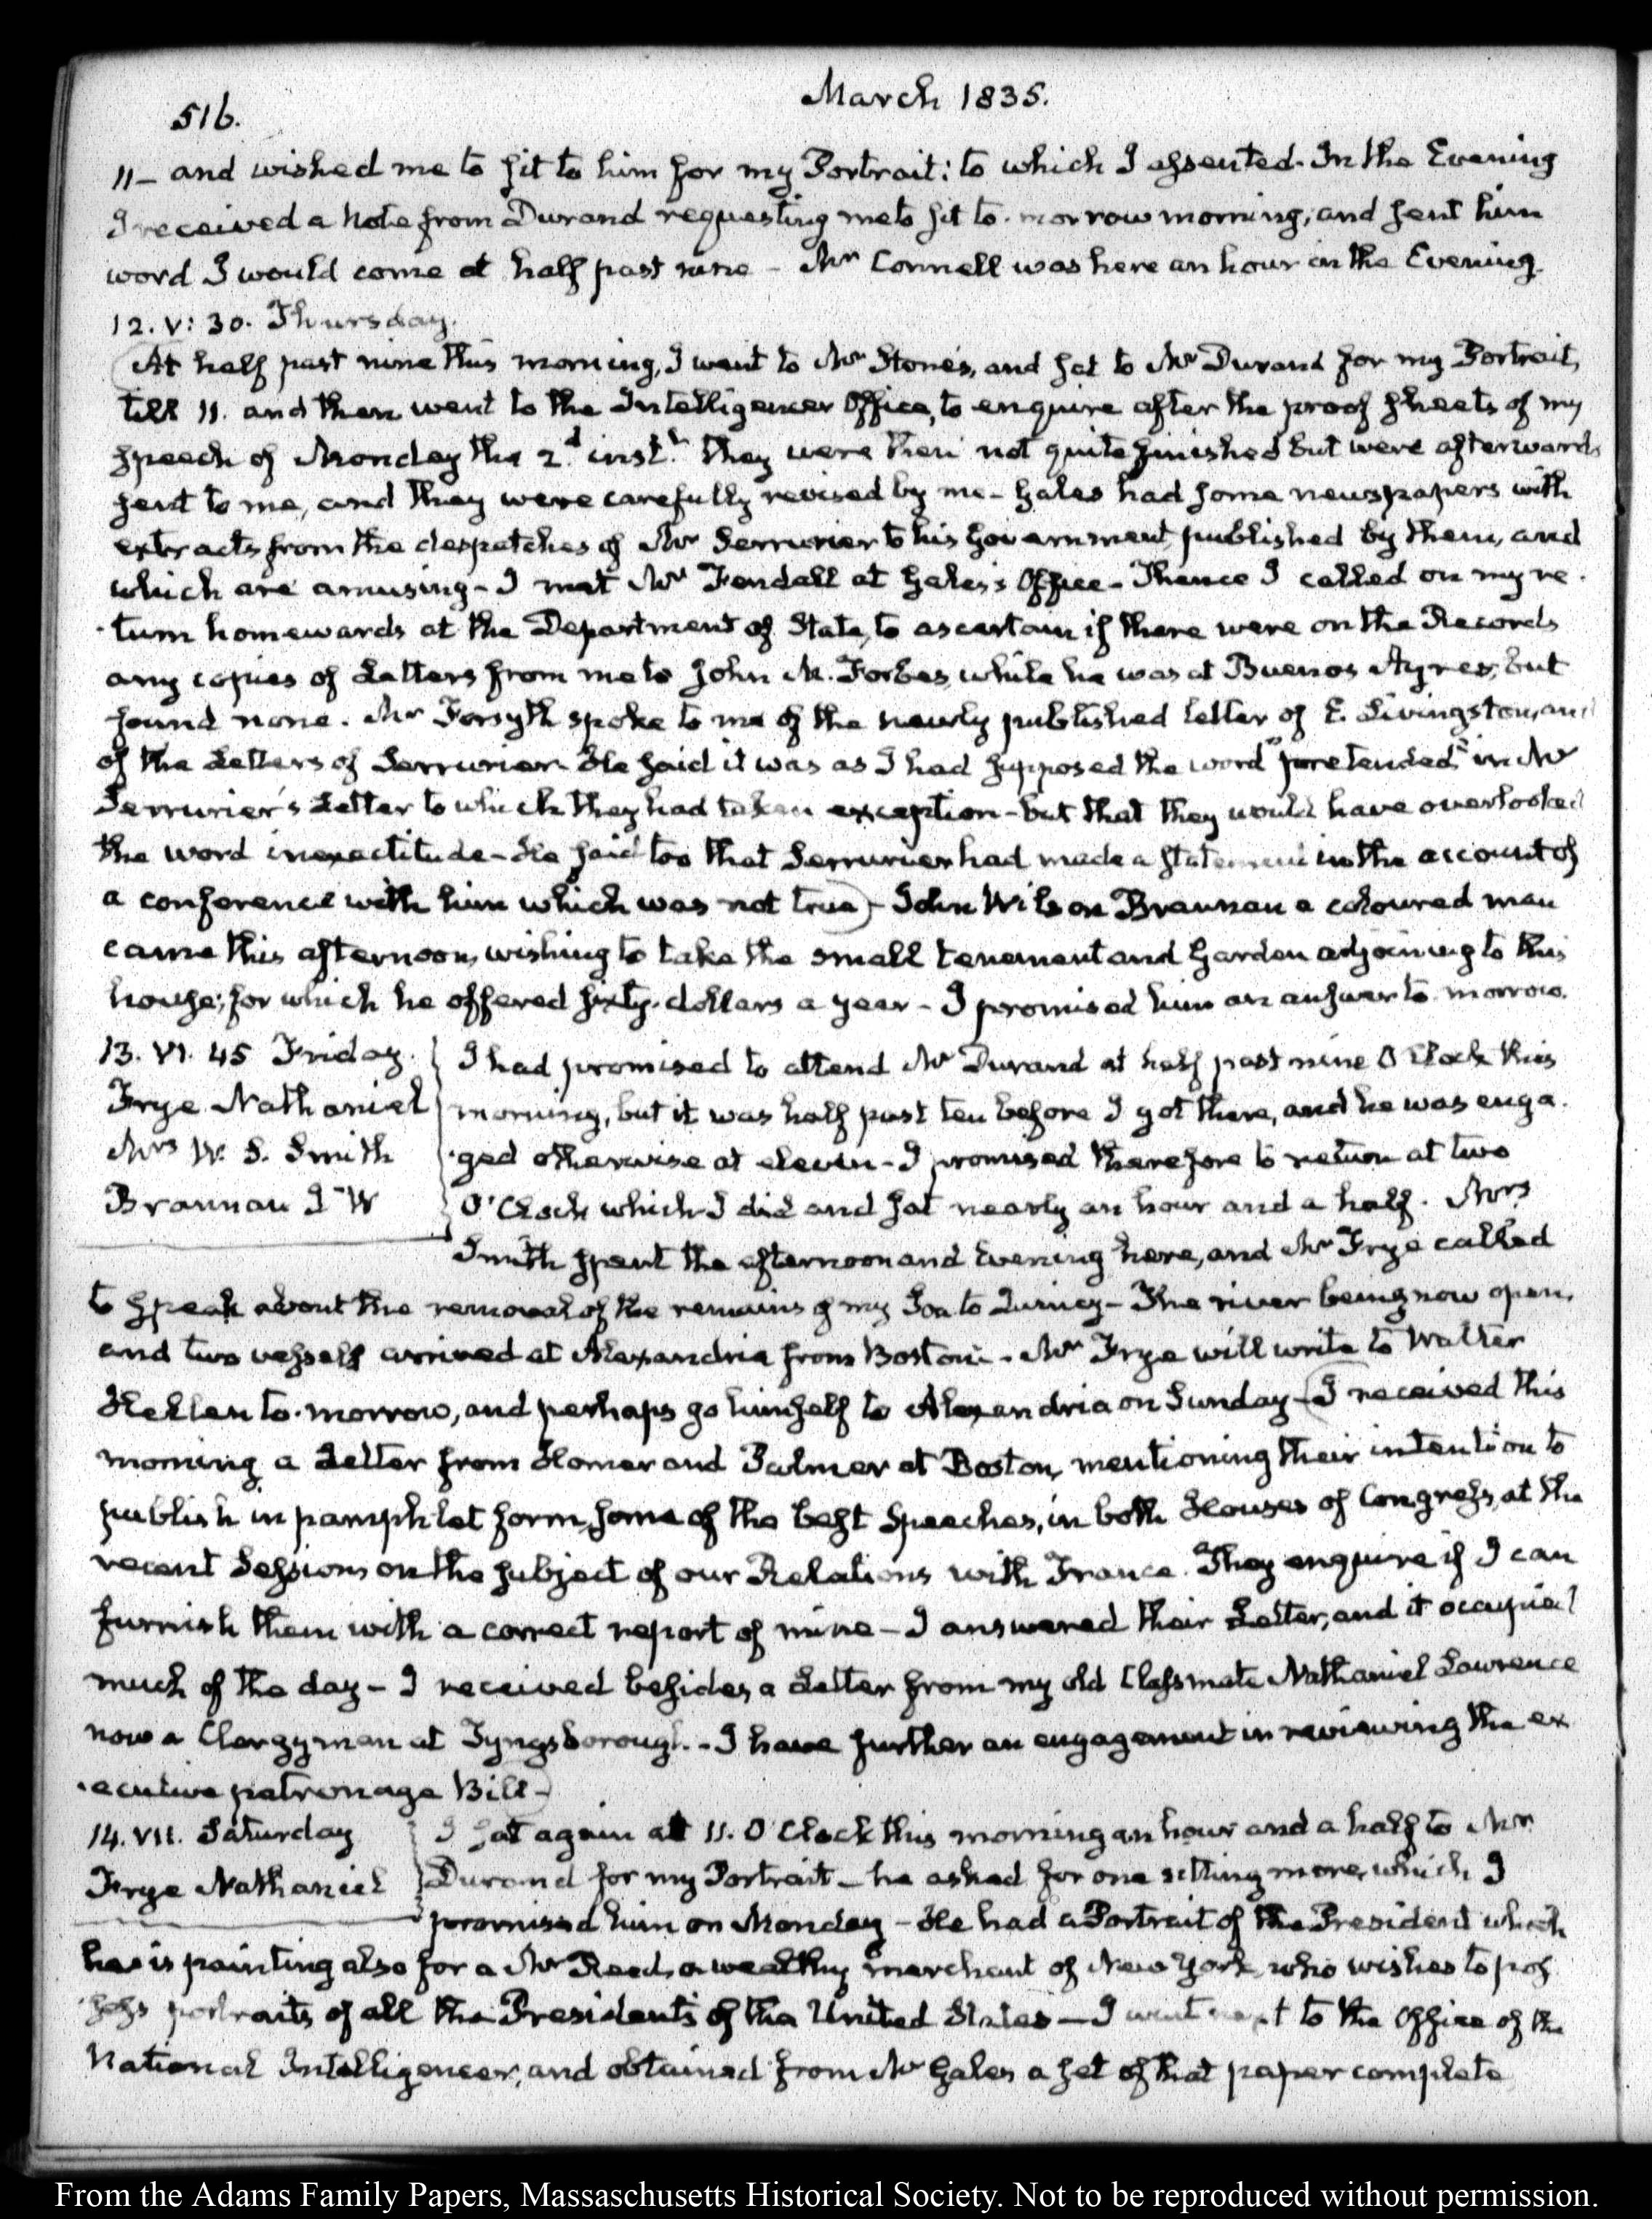 516.
March 1835.
11 – and wished me to sit to him for my Portrait: to which I assented. In the Evening
I received a Note from Durand requesting me to sit to-morrow morning, and sent him
word I would come at half past nine – Mr Connell was here an hour in the Evening.
12. V: 30. Thursday.
At half past nine this morning, I went to Mr Stone's, and sat to Mr Durand for my Portrait,
till 11. and then went to the Intelligencer Office, to enquire after the proof sheets of my
speech of Monday the 2d. instt. they were then not quite finished but were afterwards
sent to me, and they were carefully revised by me – Gales had some newspapers with
extracts from the despatches of Mr Serrurier to his Government, published by them, and
which are amusing – I met Mr Fendall at Gales's Office – Thence I called on my re-
-turn homewards at the Department of State, to ascertain if there were on the Records
any copies of Letters from me to John M. Forbes, while he was at Buenos Ayres; but
found none. Mr Forsyth spoke to me of the newly published letter of E. Livingston, and
of the Letters of Serrurier – He said it was as I had supposed the word "pretended" in Mr
Serrurier's Letter to which they had taken exception – but that they would have overlooked
the word inexactitude – He said too that Serrurier had made a statement in the account of
a conference with him which was not true) – John Wilson Brannan a coloured man
came this afternoon, wishing to take the small tenement and Garden adjoining to this
house; for which he offered sixty dollars a year – I promised him an answer to-morrow.
13. VI. 45 Friday.
Frye Nathaniel
Mrs W. S. Smith
Brannan J–W
I had promised to attend Mr Durand at half past nine O'Clock this
morning, but it was half past ten before I got there, and he was enga-
-ged otherwise at eleven – I promised therefore to return at two
O'Clock which I did and sat nearly an hour and a half. Mrs
Smith spent the afternoon and Evening here, and Mr Frye called
to speak about the removal of the remains of my Son to Quincy – The river being now open,
and two vessels arrived at Alexandria from Boston – Mr Frye will write to Walter
Hellen to-morrow, and perhaps go himself to Alexandria on Sunday – (I received this
morning a Letter from Homer and Palmer at Boston, mentioning their intention to
publish in pamphlet form, some of the best Speeches, in both Houses of Congress, at the
recent Session, on the subject of our Relations with France. They enquire if I can
furnish them with a correct report of mine – I answered their Letter, and it occupied
much of the day – I received besides, a Letter from my old Classmate Nathaniel Lawrence
now a Clergyman at Tyngsborough. – I have further an engagement in reviewing the ex-
-ecutive patronage Bill –)
14. VII. Saturday
Frye Nathaniel
I sat again at 11. O'Clock this morning an hour and a half to Mr
Durand for my Portrait – he asked for one sitting more, which I
promised him on Monday – He had a Portrait of the President which
he is painting also for a Mr Reed, a wealthy merchant of New York, who wishes to pos-
-sess portraits of all the Presidents of the United States – I went next to the Office of the
National Intelligencer, and obtained from Mr Gales a set of that paper complete
From the Adams Family Papers, Massaschusetts Historical Society. Not to be reproduced without permission.